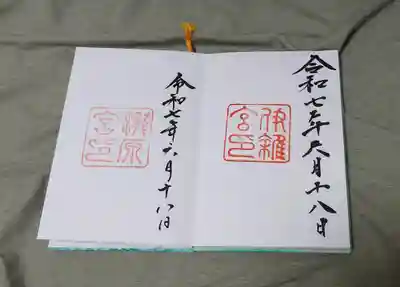 令和七年六月十八日
伊雑宮印
令和七年六月十八日
瀧原宮印